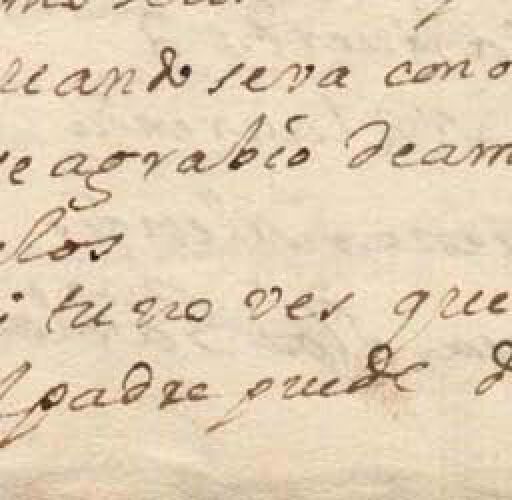 uando sera cono
e agrabio de am
elos
i tu no ves que
l padre puede d